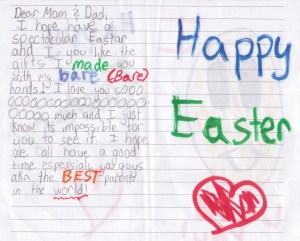 Dear Mom & Dad,
I hope have a
spectacular Eastar
and I you like the
gifts I made you
with my bare (Bare)
hands! I love you sooo
ooooooooooooooooo
ooooo much and I just
know its impossible for
you to see it. I hope
we all have a good
time espessialy you guys
aka the BEST parents
in the world!
Happy
Easter